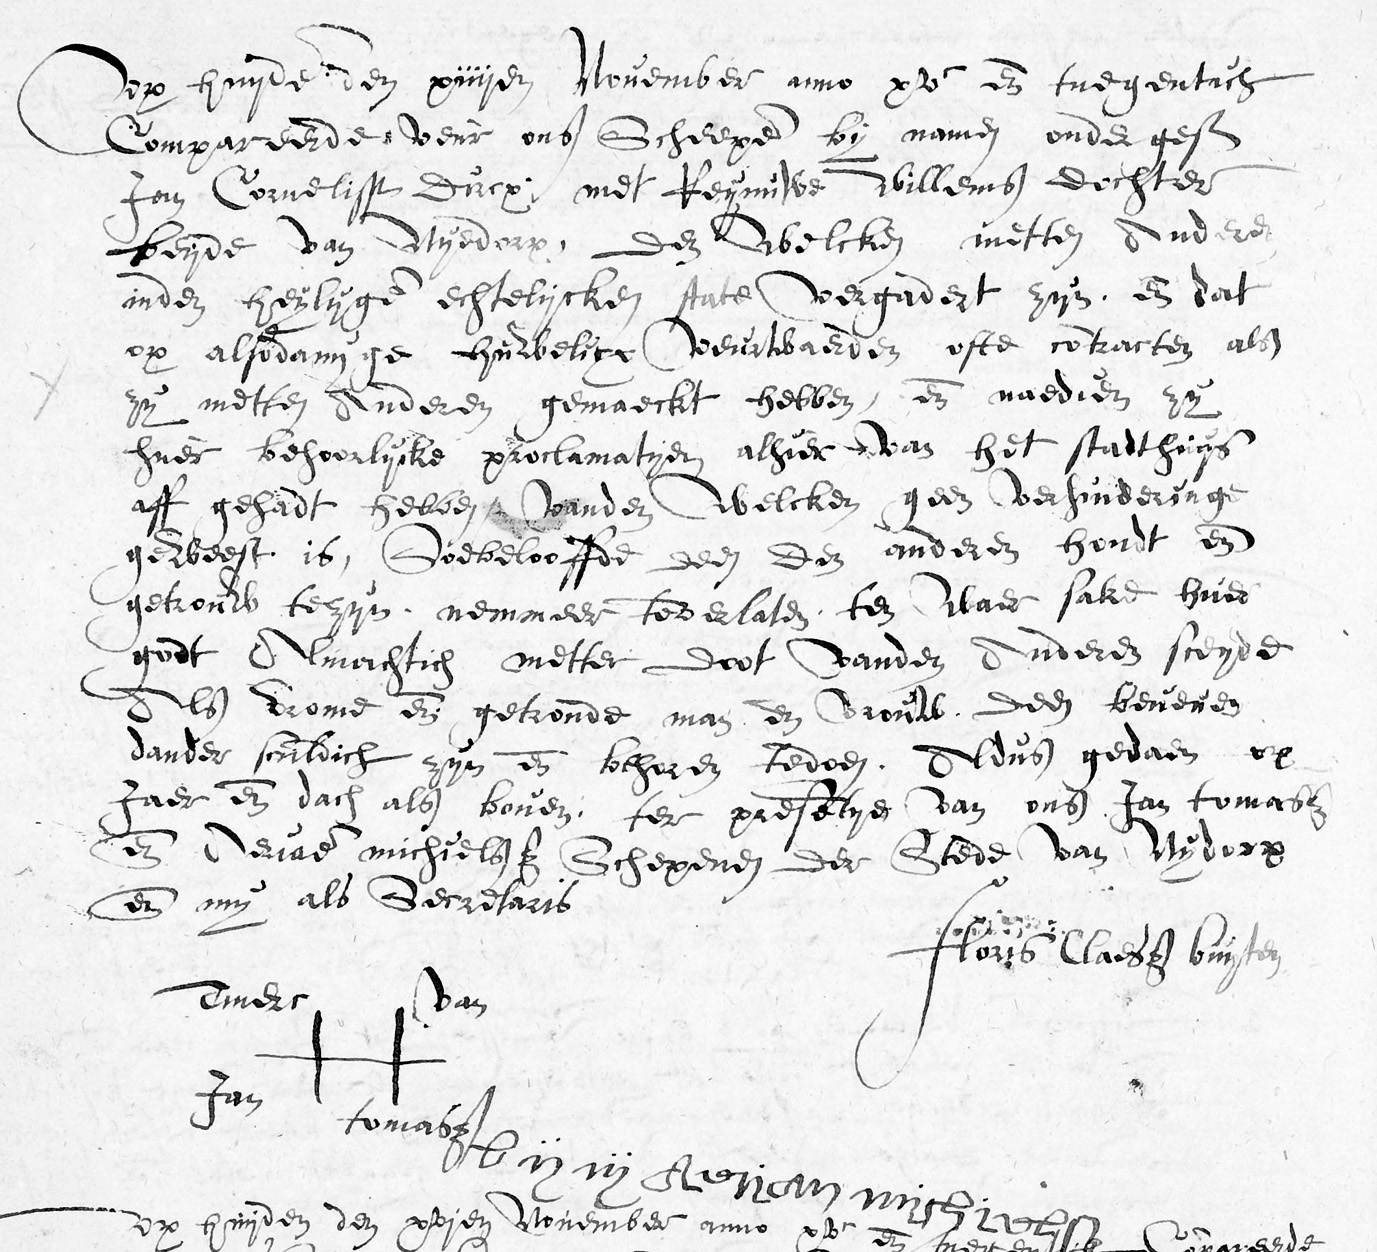 Op huijde den xiiijen November anno xvc en tnegentich
Compareerde veur ons Scheepe by namen onderges
Jan Cornelisz Dircx met Reynuwe Willems dochter
beyde van Nyedorp, den Welcken metten Andere
inden heylyge echtelijcken state vergadert zyn. en dat
op alsodanyge huwelixe veurwaerden ofte contracten als
zy metten Anderen gemaeckt hebben, en naedien zy
huer behoorlycke proclamatyen alhier van het stadthuys
aff gehadt hebben, vanden Welcken geen verhinderinge
geweest is, Soe beloofde deen den anderen houdt en
getrouw te zyn. nemmeer te verlaten. ten Waer sake huer
godt Almachtich metter doot vanden Anderen sceyde
Als vrome en getroude man en vrouw. deen beneven
dander sculdich zyn en behoren te doen. Aldus gedaen op
Jaer en dach als boven. ter presetye van ons Jan tomasz
en Aeriae michielsz Schepenen der Stede van Nydorp
en my als Secretaris
floris Claesz buyten
Tmerc van
Jan
tomasz
by my Aerijaen michielsz
Op huijden den xvjen November anno xvc en Compareerde